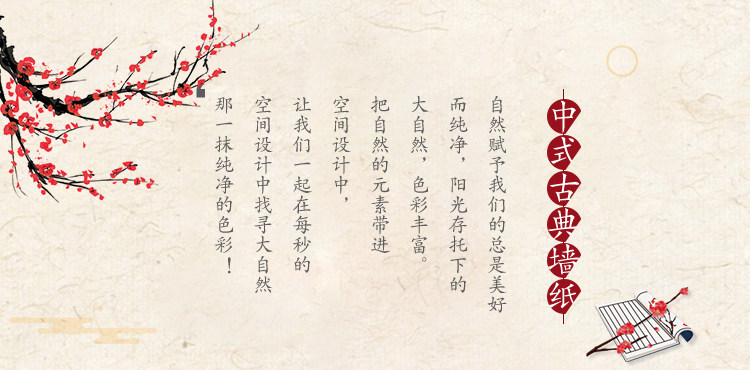 中式古典墙纸
自然赋予我们的总是美好
而纯净，阳光存托下的
大自然，色彩丰富。
把自然的元素带进
空间设计中，
让我们一起在每秒的
空间设计中找寻大自然
那一抹纯净的色彩！